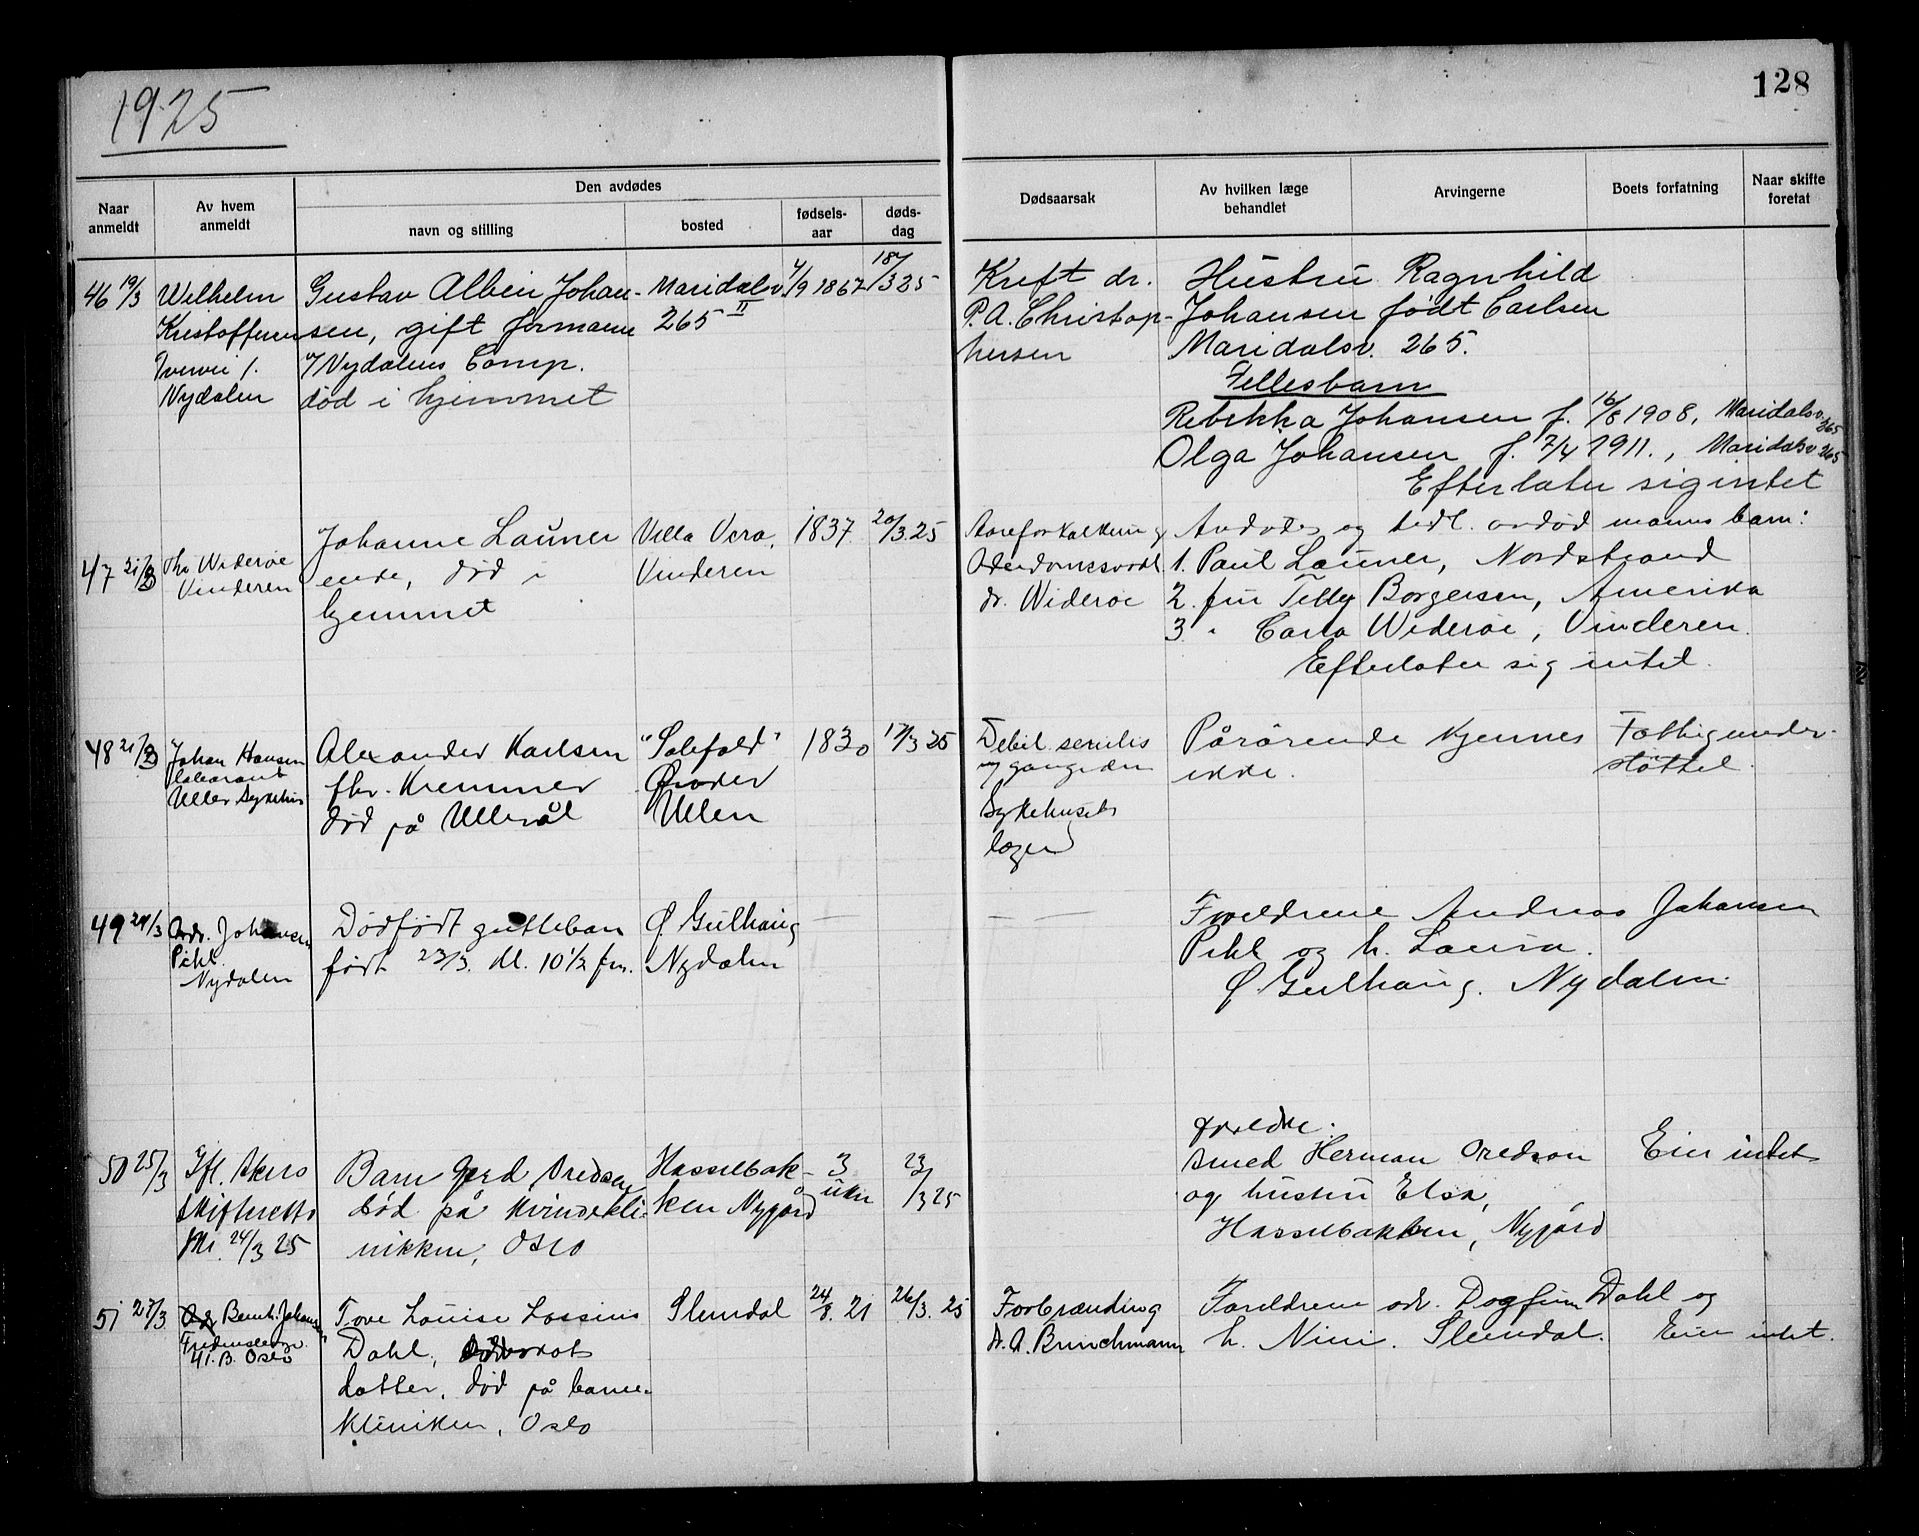 1925
128
Naar anmeldt
Av hvem anmeldt
Den avdødes
navn og stilling
bosted
fødsels-aar
døds-dag
Dødsaarsak
Av hvilken læge behandlet
Arvingerne
Boets forfatning
Naar skifte foretat
46 19/3 Wilhelm Gustav Albin Johan- Maridalsv. 4/9 1867 18/3 25 Kreft dr. Hustru Ragnhild
Kristoffersen sen, gift formann 265 II P.A. Christop- Johansen født Carlsen
v/ Nydalens Comp. hersen Maridalsv. 265.
Nydalen død i hjemmet Fellesbarn
Rebekka Johansen f. 16/8 1908, Maridalsv. 265
Olga Johansen f. 7/4 1911., Maridalsv 265
Efterlater sig intet
47 21/3 Th. Widerøe Johanne Launer Villa Vera, 1837 20/3 25 Aareforkalkning Avdødes og tidl. avdød manns barn:
Vinderen enke, død i Vinderen 1. Paul Launer, Nordstrand
hjemmet dr. Widerøe 2. fru Tilly Borgersen, Amerika
3. " Carla Widerøe, Vinderen.
Efterlater sig intet.
48 21/3 Johan Hansen Alexander Karlsen "Solefald" 1830 17/3 25 Debil. senilis Pårørende kjennes Fattigunder-
fhv. Kremmer Øvre ikke. støttet.
død på Ullevål Ullern Sykehusets
læger
49 24/3 Andr. Johansen Dødfødt guttebarn Ø Gullhaug — — Foreldrene Andreas Johansen
Pihl født 23/3. kl. 10 1/2 fm. Nydalen Pihl og h. Laura.
Nydalen Ø Gullhaug. Nydalen.
foreldre.
50 25/3 Ifl. Akers Barn Gerd Oredson Hasselbak- 3 23/3 25 Smed Herman Oredson Eier intet
skifteretts død på kvinnekli- ken Nygård uker og hustru Elsa,
skr. 24/3 25 nikken, Oslo Hasselbakken, Nygård
51 27/3 Bernh. Johansen Tove Louise Lossius Slemdal 24/8. 21 26/3. 25 Forbrænding Foreldrene adv. Dagfinn Dahl og
Dahl, dr. A. Brinchmann h. Nini. Slemdal. Eier intet.
41. B. Oslo datter, død på barne-
kliniken, Oslo